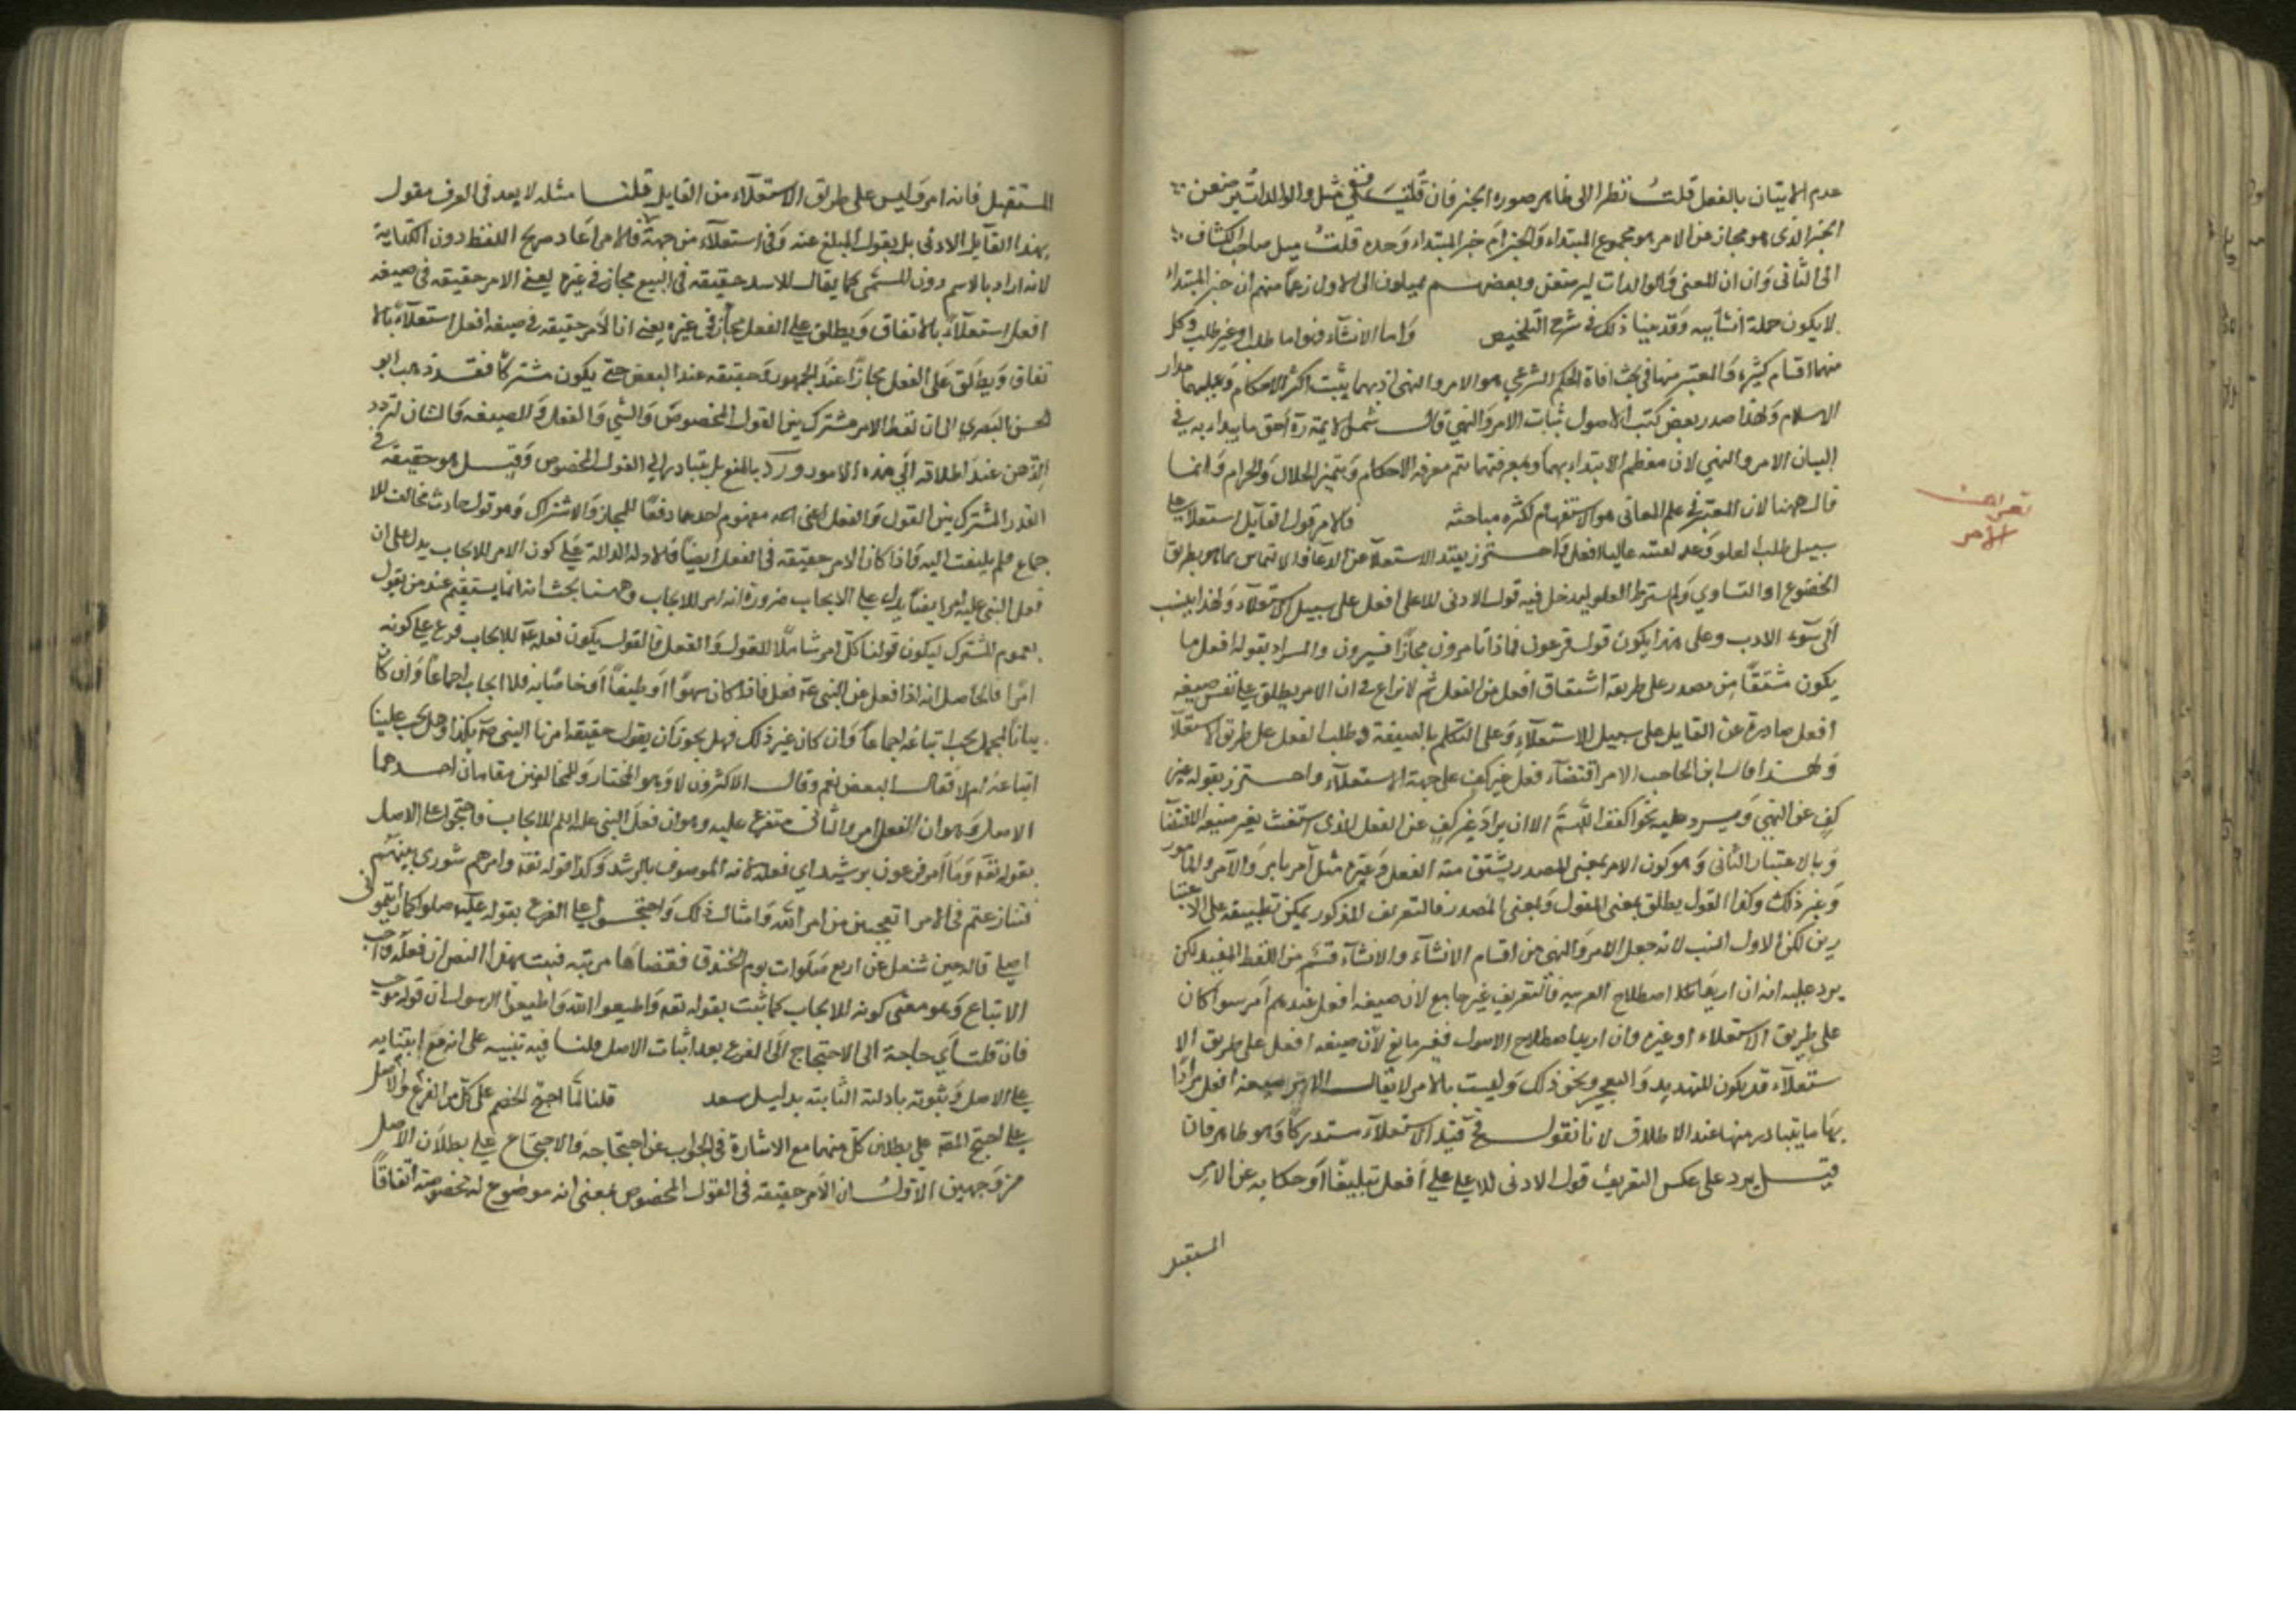 عدم الاتيان بالفعل قلت نظرا الى ظاهر صورة الخبر فان قلت في مثل والوالدات يرضعن
الخبر الذى هو مجاز عن الامر هو مجموع المبتداء والخبر ام خبر المبتداء وحده قلت ميل صاحب الكشاف
الى الثانى وان المعنى والوالدات ليرضعن وبعضهم يميلون الى الاول زعما منهم ان خبر المبتداء
لا يكون جملة انشائية وقد بينا ذلك في شرح التلخيص واما الانشاء فهو اما طلب او غير طلب وكل
منهما اقسام كثيرة والمعتبر منها في بحث افادة الحكم الشرعي هو الامر والنهى اذ بهما يثبت اكثر الاحكام وعليهما مدار
الاسلام ولهذا صدر بعض كتب الاصول بباب الامر والنهى قال شمس الائمة رة احق ما يبداء به في
البيان الامر والنهي لان معظم الابتداء بهما وبمعرفتهما تتم معرفة الاحكام ويتميز الحلال والحرام وانما
قال ههنا لان المعتبر في علم المعانى هو الاستفهام لكثرة مباحثه فالامر قول القايل استعلاء على
سبيل طلب العلو وعد نفسه عاليا افعل واحترز بقيد الاستعلاء عن الدعاء والالتماس مما هو بطريق
الخضوع او التساوي ولم يشترط العلو ليدخل فيه قول الادنى للاعلى افعل على سبيل الاستعلاء ولهذا ينسب
الى سوء الادب وعلى هذا يكون قول فرعون فماذا تامرون مجازا تشيرون والمراد بقوله افعل ما
يكون مشتقا من مصدر على طريقة اشتقاق افعل من الفعل ثم لا نزاع في ان الامر يطلق على نفس صيغة
افعل صادرة عن القايل على سبيل الاستعلاء وعلى التكلم بالصيغة وطلب الفعل على طريق الاستعلاء
ولهذا قال ابن الحاجب الامر اقتضاء فعل غير كف على جهة الاستعلاء واحترز بقوله غير
كف عن النهي ويرد عليه نحو اكفف اللهم الا ان يراد غير كف عن الفعل الذى اشتقت منه صيغة الاقتضاء
وبالاعتبار الثانى وهو كون الامر بمعنى المصدر يشتق منه الفعل وغيره مثل امر يامر والآمر والمامور
وغير ذلك وكذا القول يطلق بمعنى المقول وبمعنى المصدر فالتعريف المذكور يمكن تطبيقه على الاعتبا
رين لكن الاول انسب لانه جعل الامر والنهى من اقسام الانشاء والانشاء قسم من اللفظ المفيد لكن
يرد عليه انه ان اريد اصطلاح العربية فالتعريف غير جامع لان صيغة افعل عندهم امر سواء كان
على طريق الاستعلاء او غيره وان اريد اصطلاح الاصول فغير مانع لان صيغة افعل على طريق الا
ستعلاء قد يكون للتهديد والتعجيز ونحو ذلك وليست بالامر لا يقال المراد صيغة افعل مرادا
بها ما يتبادر منها عند الاطلاق لانا نقول فح قيد الاستعلاء مستدركا وهو ظاهر فان
قيل يرد على عكس التعريف قول الادنى للاعلى افعل تبليغا او حكاية عن الامر
المستقبل
تعريف
الامر
المستقبل فانه امر وليس على طريق الاستعلاء من القايل قلنا مثله لا يعد في العرف مقول
هذا القايل الادنى بل يقول المبلغ عنه وفي استعلاء من جهته فالامر اعاد صريح اللفظ دون الكناية
لانه اراد بالاسم دون المسمى كما يقال للاسد حقيقة في السبع مجاز في غيره يعنى الامر حقيقة في صيغة
افعل استعلاء بالاتفاق ويطلق على الفعل مجاز في غيره يعنى ان الامر حقيقة في صيغة افعل استعلاء بالا
تفاق ويطلق على الفعل مجازا عند الجمهور وحقيقة عند البعض حتى يكون مشتركا فقد ذهب ابو
الحسن البصري الى ان لفظ الامر مشترك بين القول المخصوص والشي والفعل والصيغة والشان لتردد
الذهن عند اطلاقه الى هذه الامور ورد بالمنع بل يتبادر الى القول المخصوص وقيل هو حقيقة في
القدر المشترك بين القول والفعل اعنى مفهوم احدهما دفعا للمجاز والاشتراك وهو قول حادث مخالف للا
جماع فلم يلتفت اليه واذا كان الامر حقيقة في الفعل ايضا فالادلة الدالة على كون الامر للايجاب يدل على ان
فعل النبي عليه ايضا يدل على الايجاب ضرورة انه امر للايجاب وههنا بحث انه انما يستقيم عند من يقول
بعموم المشترك ليكون قولنا كل امر شاملا للقول والفعل فالقول بكون فعله للايجاب فرع على كونه
امرا فالحاصل انه اذا فعل عن النبي فعل فاذا كان سهوا او طبعا او خاصا به فلا ايجاب اجماعا وان كان
بيانا لمجمل يجب اتباعه اجماعا وان كان غير ذلك فهل يجوز ان يقول حقيقة امرنا النبي بكذا وهل يجب علينا
اتباعه ام لا فقال البعض نعم وقال الاكثرون لا وهو المختار وللمخالفين مقامان احدهما
الاصل وهو ان الفعل امر والثانى متفرع عليه وهو ان فعل النبي عليه السلم للايجاب فاحتجوا على الاصل
بقوله تع وما امر فرعون برشيد اي فعله لانه الموصوف بالرشد وكذا قوله تع وامرهم شورى بينهم
فتنازعتم في الامر اتعجبين من امر الله وامثال ذلك واحتجوا على الفرع بقوله عليه صلوا كما رايتمونى
اصلى قاله حين شغل عن اربع صلوات يوم الخندق فقضاها مرتبة فثبت بهذا النص ان فعله واجب
الاتباع وهو معنى كونه للايجاب كما ثبت بقوله تع واطيعوا الله واطيعوا الرسول ان قوله موجب
فان قلت اي حاجة الى الاحتجاج الى الفرع بعد اثبات الاصل قلنا فيه تنبيه على انه مع ابتنايه
على الاصل وثبوته بادلته الثابتة بدليل قلنا لما احتج الخصم على كل من الفرع والاصل
على احتج المصنف على بطلان كل منهما مع الاشارة في الجواب عن احتجاجه والاحتجاج على بطلان الاصل
من وجهين الاول ان الامر حقيقة في القول المخصوص بمعنى انه موضوع له بخصوصه اتفاقا